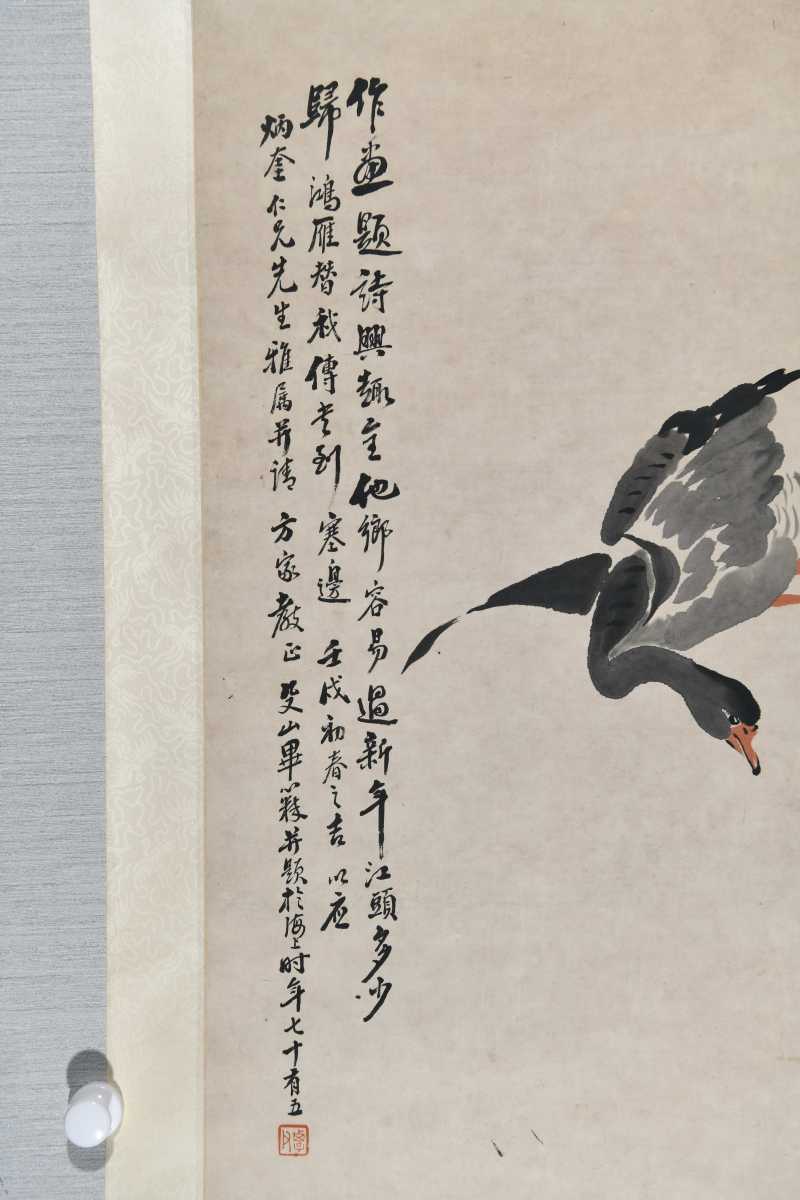 作畫題詩興趣全他鄉容易過新年江頭多少
歸鴻雁替我傳書到塞邊 壬戌初春之吉以應
炳奎仁兄先生雅属并請 方家教正 山畢并題於海上时年七十有五